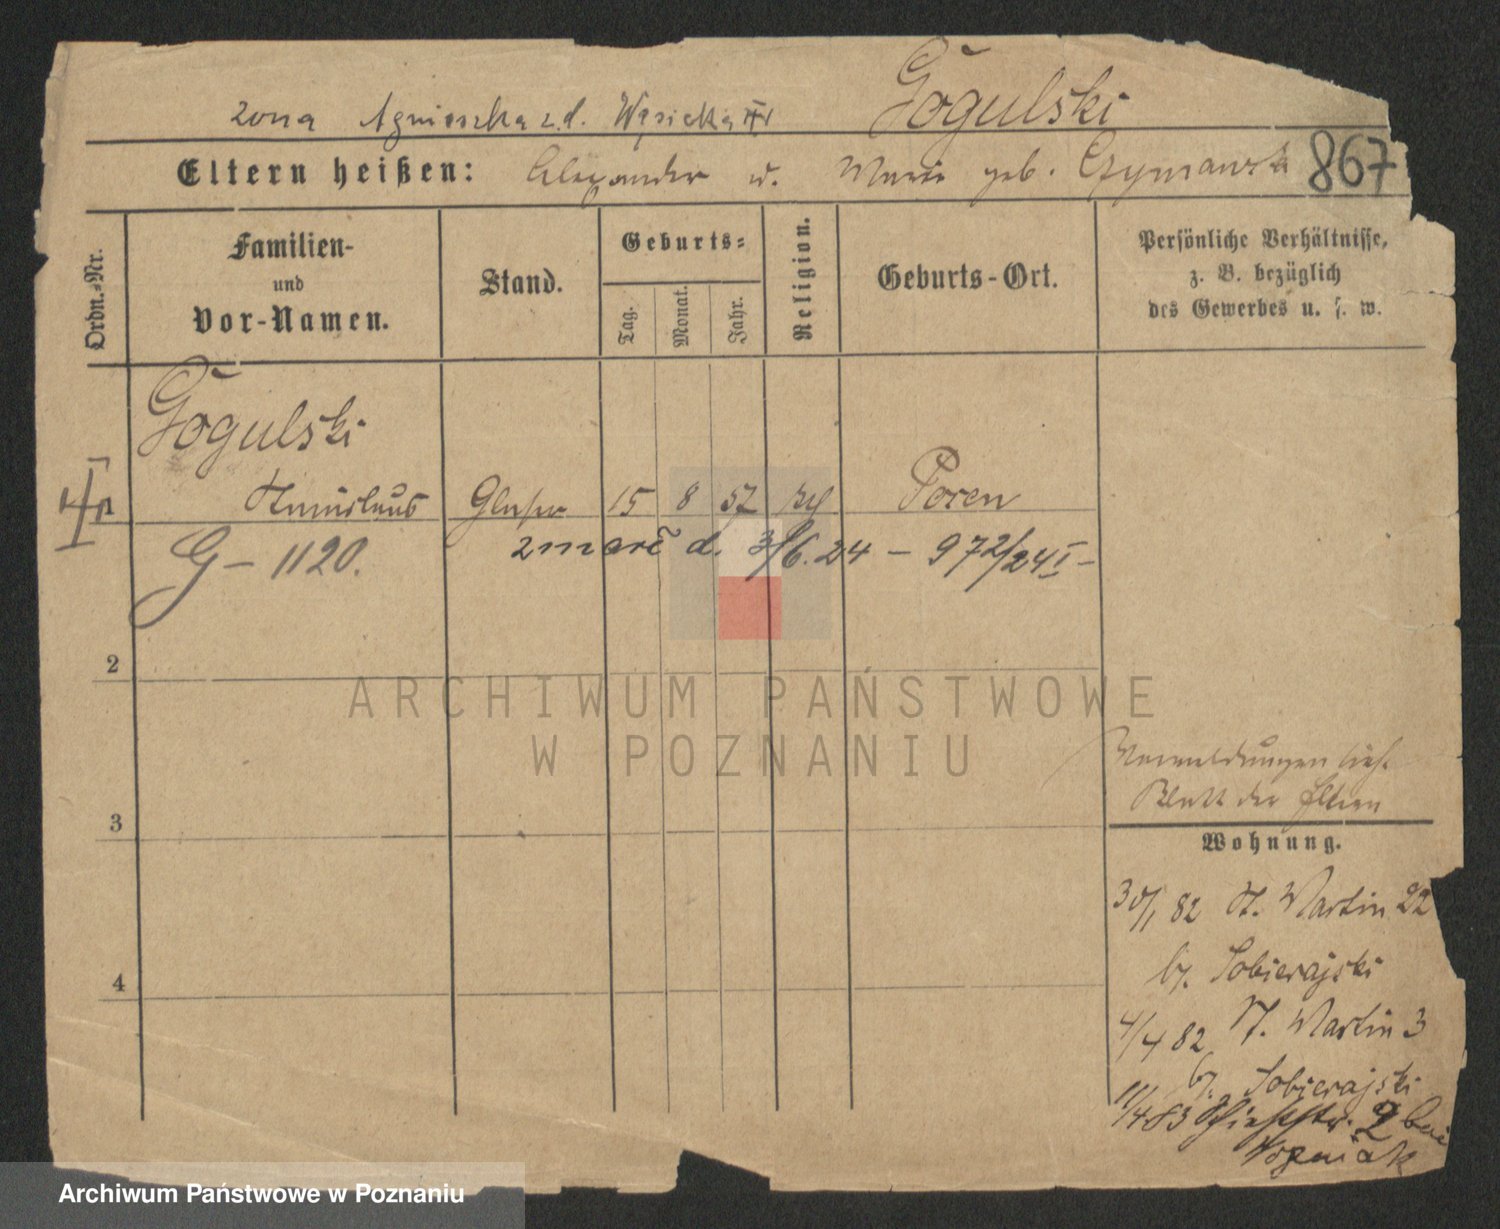 Gogulski
żona Agnieszka z d. Węsicka
Eltern heißen: Alexander u. Marie geb. Czymanska 867
Ordn.-Nr.
Familien-
und
Vor-Namen.
Stand.
Geburts-
Tag.
Monat.
Jahr.
Religion.
Geburts-Ort.
Persönliche Verhältnisse,
z. B. bezüglich
des Gewerbes u. s. w.
Gogulski
1 Stanislaus Glaser 15 8 57 kth Posen
G - 1120. zmarł d. 3/6.24 - 972/24 I -
2
3
4
Vermeldungen sieh.
Blatt der Eltern
Wohnung.
30/1 82 St. Martin 22
bei Sobierajski
4/4 82 St. Martin 3
bei Sobierajski
11/4 83 Schießstr. 2 bei
Wozniak
ARCHIWUM PAŃSTWOWE
W POZNANIU
Archiwum Państwowe w Poznaniu